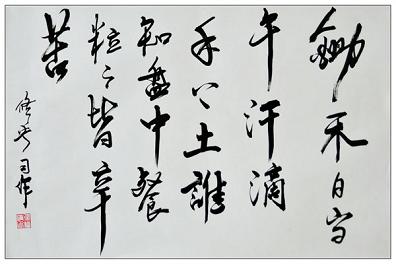 鋤禾日当
午汗滴
禾下土誰
知盤中餐
粒々皆辛
苦